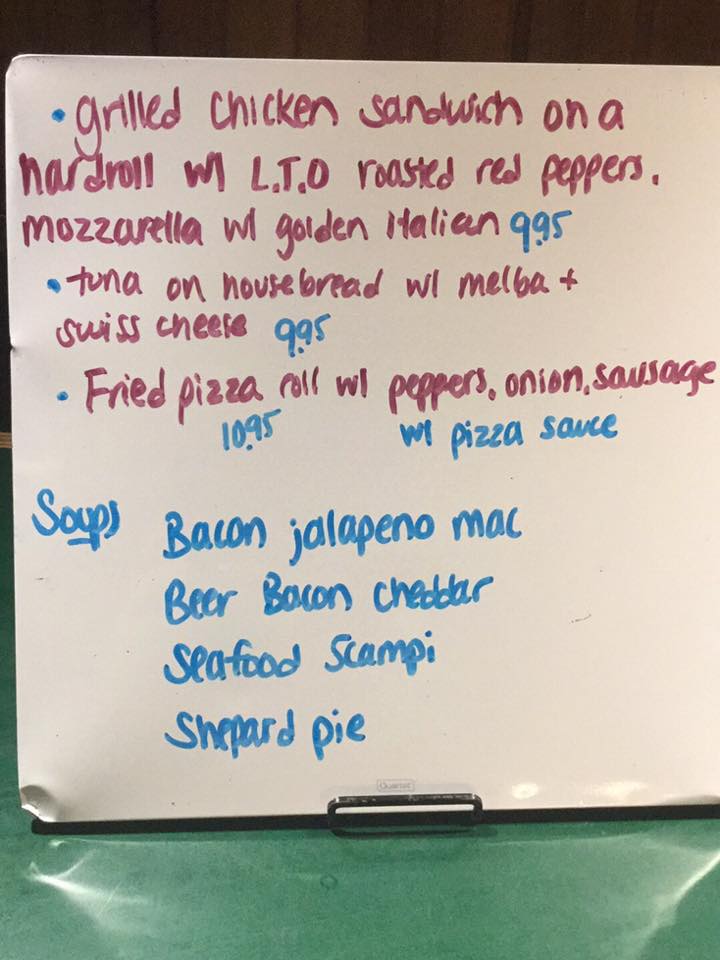 • grilled chicken sandwich on a
hardroll w/ L.T.O roasted red peppers,
mozzarella w/ golden italian 9.95
• tuna on housebread w/ melba +
swiss cheese 9.95
• Fried pizza roll w/ peppers, onion, sausage
10.95 w/ pizza sauce
Soups Bacon jalapeno mac
Beer Bacon cheddar
Seafood Scampi
Shepard pie
Quartet